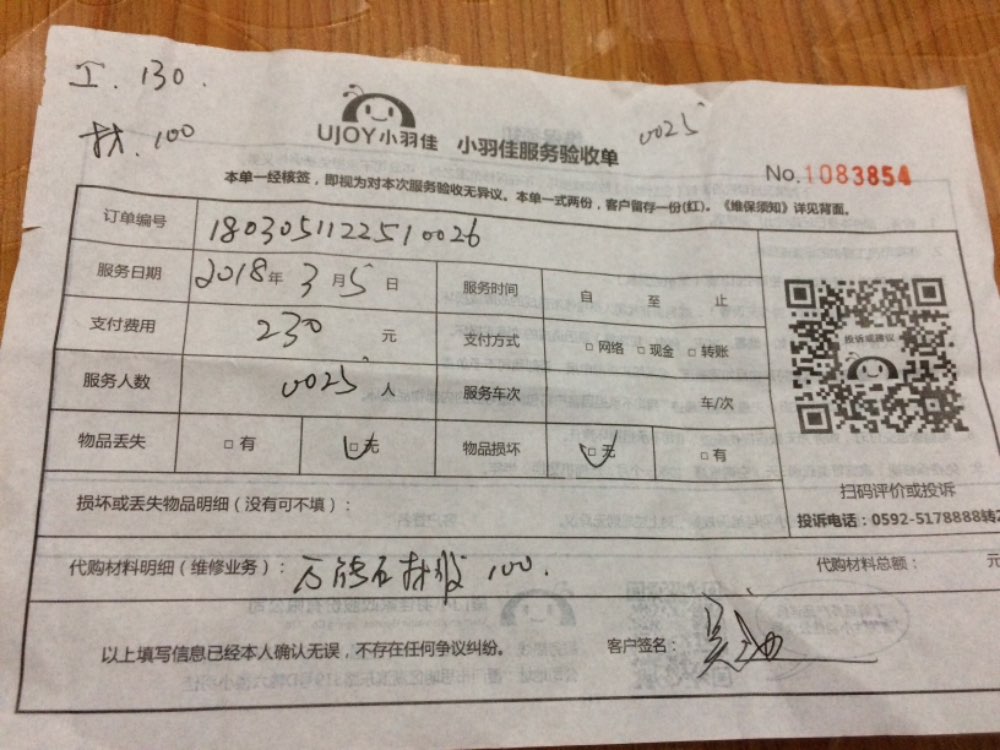 工.130.
材.100
UJOY小羽佳 小羽佳服务验收单
0025
No.1083854
本单一经核签，即视为对本次服务验收无异议。本单一式两份，客户留存一份(红)。《维保须知》详见背面。
订单编号 180305112251 0026
服务日期 2018年3月5日 服务时间 自 至 止
支付费用 230 元 支付方式 □网络 □现金 □转账
服务人数 0025 人 服务车次 车/次
物品丢失 □有 □无 物品损坏 □无 □有
投诉或建议
扫码评价或投诉
投诉电话：0592-5178888转2
损坏或丢失物品明细（没有可不填）：
代购材料明细（维修业务）：万能石材胶 100. 代购材料总额： 元
以上填写信息已经本人确认无误，不存在任何争议纠纷。 客户签名：吴